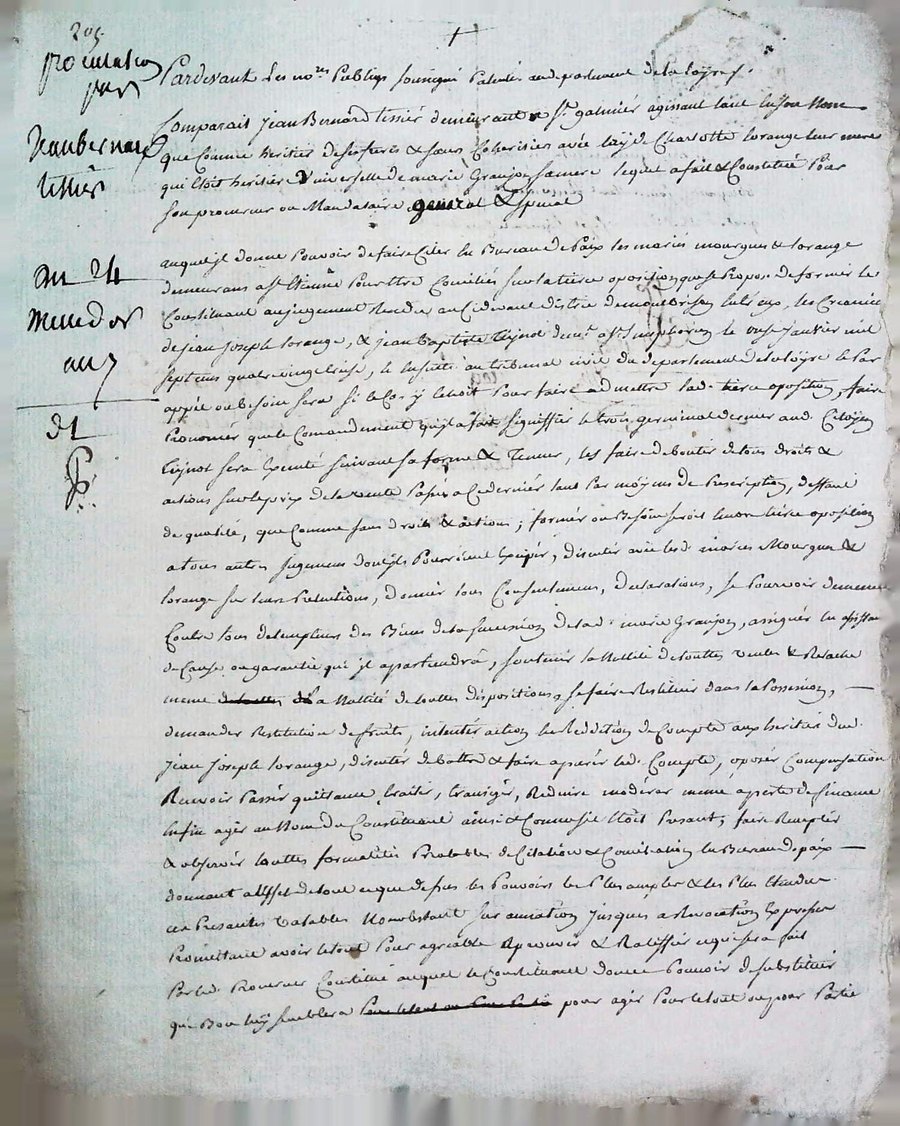 205
procuration
par
Jean bernard
tessier
du 24
Messidor
an 7
d1
Pardevant Les no.res Publiqs soussigné Patentés au departement de la Loyre.
Comparait Jean Bernard tessier demeurant a St. galmier agissant tant en son Nom
que Comme heritier de ses freres & sœurs Coheritiers avec luy de Charlotte lorange leur mere
qui Etoit heritiere universelle de marie Granjon sa mere lequel a fait & Constitué Pour
son procureur ou Mandataire general & special
auquel jl donne Pouvoir de faire Citer en Bureau de Paix les mariés mourgues & lorange
demeurans a St. Etienne Pour Etre Conciliés sur la tierce oposition que se Propose de former le
Constituant au jugement Rendu au Cidevant district de montbrison entre eux, les Creanciers
de jean joseph lorange, & jean Baptiste Peynot dem.t a St. simphorien le onze janvier mil
sept cens quatre vingt treize, Ensuite au tribunal civil du departement de la loyre le Par
appel ou besoin sera si le Cas y Echoit Pour faire admettre lad. tierce oposition, faire
Prononcer que le Comandement qujl a fait signiffier le trois germinal dernier aud. Citoyen
Peynot sera Executé suivant sa forme & Teneur, les faire debouter de tous droits &
actions sur le prix de la vente Passée a Ce dernier tant Par moyens de Prescription, deffaut
de qualité, que Comme sans droits & actions; former ou Besoin seroit toute tierce oposition
a tous autres jugemens dont jls Pourroient Exciper, discuter avec lesd. mariés Mourgues &
lorange sur leurs Pretentions, donner tous Consentemens, declarations, se Pourvoir de meme
Contre tous detempteurs des Biens de la succession de lad. marie Granjon, assigner en assistance
de Cause ou garantie qui jl apartiendra, soutenir la Nullité de touttes ventes & Relache
meme la Nullité de touttes dispositions, se faire Restituer dans la Possession,
demander Restitution de fruits, intenter action en Reddition de Compte aux heritiers dud.
jean joseph lorange, discuter debattre & faire apurer led. Compte, oposer Compensation
Recevoir Passer quittance, traiter, transiger, Reduire moderer meme a perte de finance
Enfin agir au Nom du Constituant ainsi & Comme sil Etoit Present; faire Remplir
& observer touttes formalités Préalables de Citation & Conciliation en Bureau de paix
donnant a leffet de tout ce que dessus les Pouvoirs les Plus amples & les Plus Etendus
ces Presentes valables Nonobstant surannation jusques a Revocation Expresse
Promettant avoir le tout Pour agreable aprouver & Ratiffier ce qui sera fait
Par led. Procureur Constitué auquel le Constituant donne Pouvoir de substituer
qui Bon luy semblera pour agir Pour le tout ou pour Partie